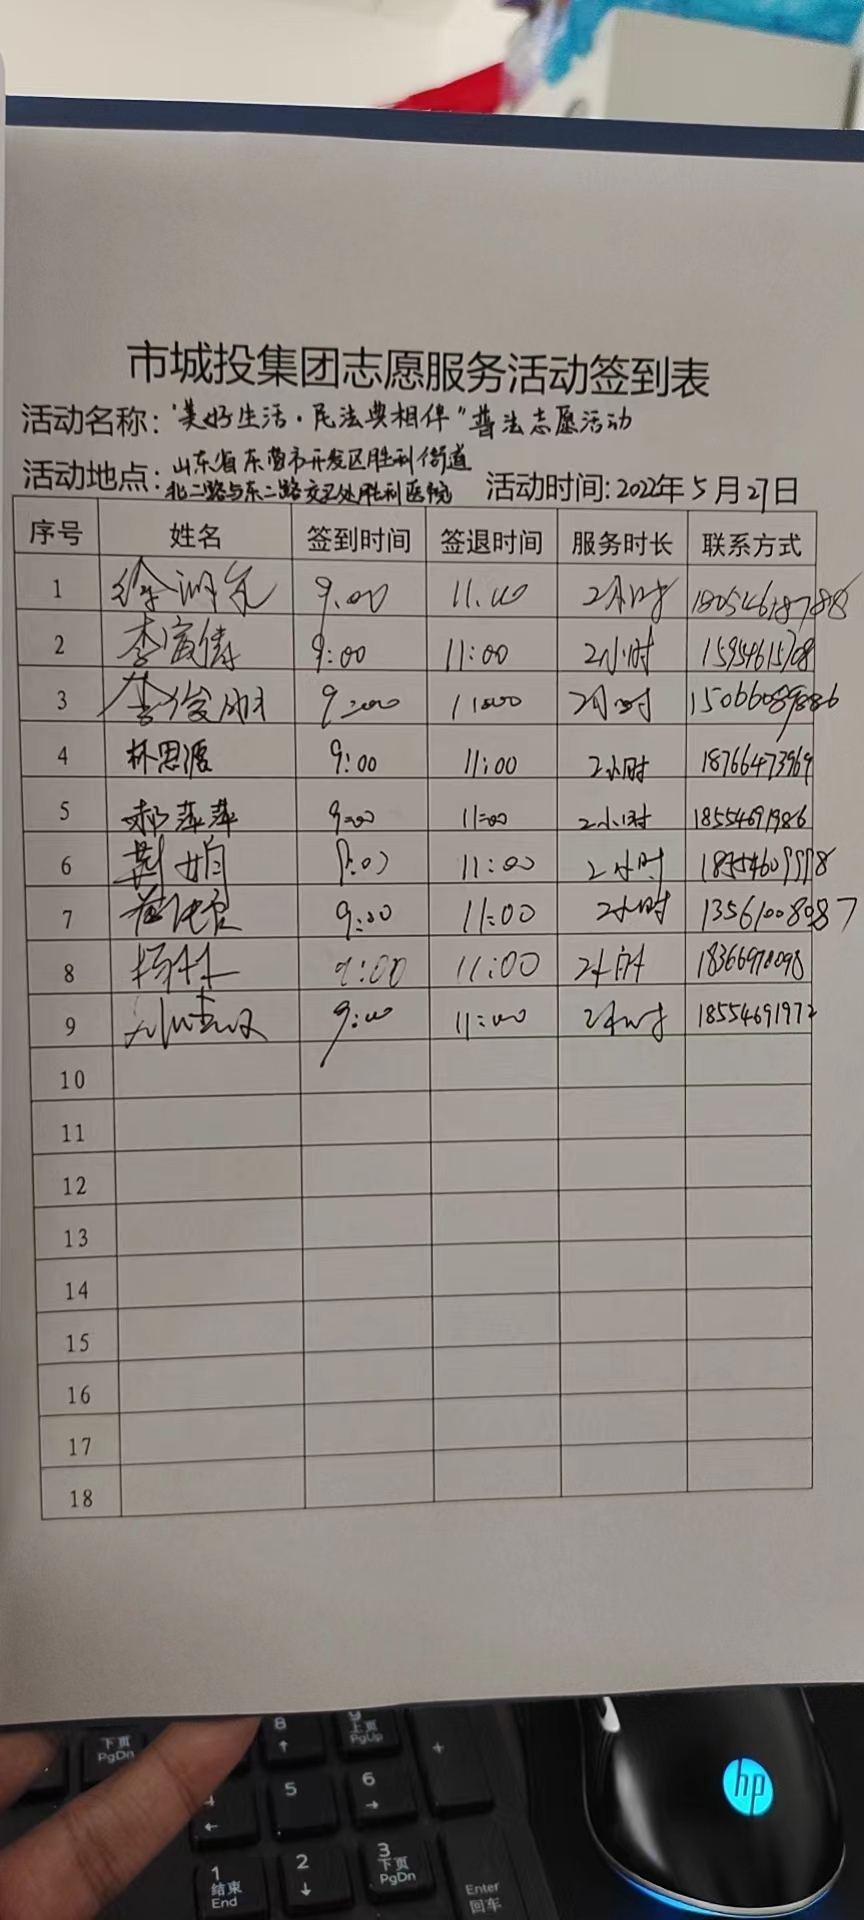 市城投集团志愿服务活动签到表
活动名称："美好生活·民法典相伴"普法志愿活动
活动地点：山东省东营市开发区胜利街道
北二路与东二路交叉处胜利医院 活动时间:2022年5月27日
序号 姓名 签到时间 签退时间 服务时长 联系方式
1 9:00 11:00 2小时 18054618788
2 李寅倩 9:00 11:00 2小时 15954615708
3 9:00 11:00 2小时 15066089886
4 林思源 9:00 11:00 2小时 18766473969
5 郝萍萍 9:00 11:00 2小时 18554691986
6 荆娟 9:00 11:00 2小时
7 9:00 11:00 2小时 13561008087
8 杨林 9:00 11:00 2小时
9 9:00 11:00 2小时 18554691972
10
11
12
13
14
15
16
17
18
8 ↑
9 上页 PgUp
下页 PgDn
+
4 ←
5
6 →
1 结束 End
2 ↓
3 下页 PgDn
Enter 回车
hp